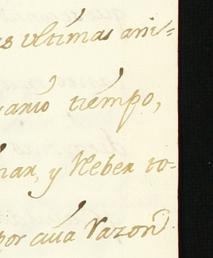 as ultimas ani=
ario tiempo,
nar, y Neber to-
por cuia razon